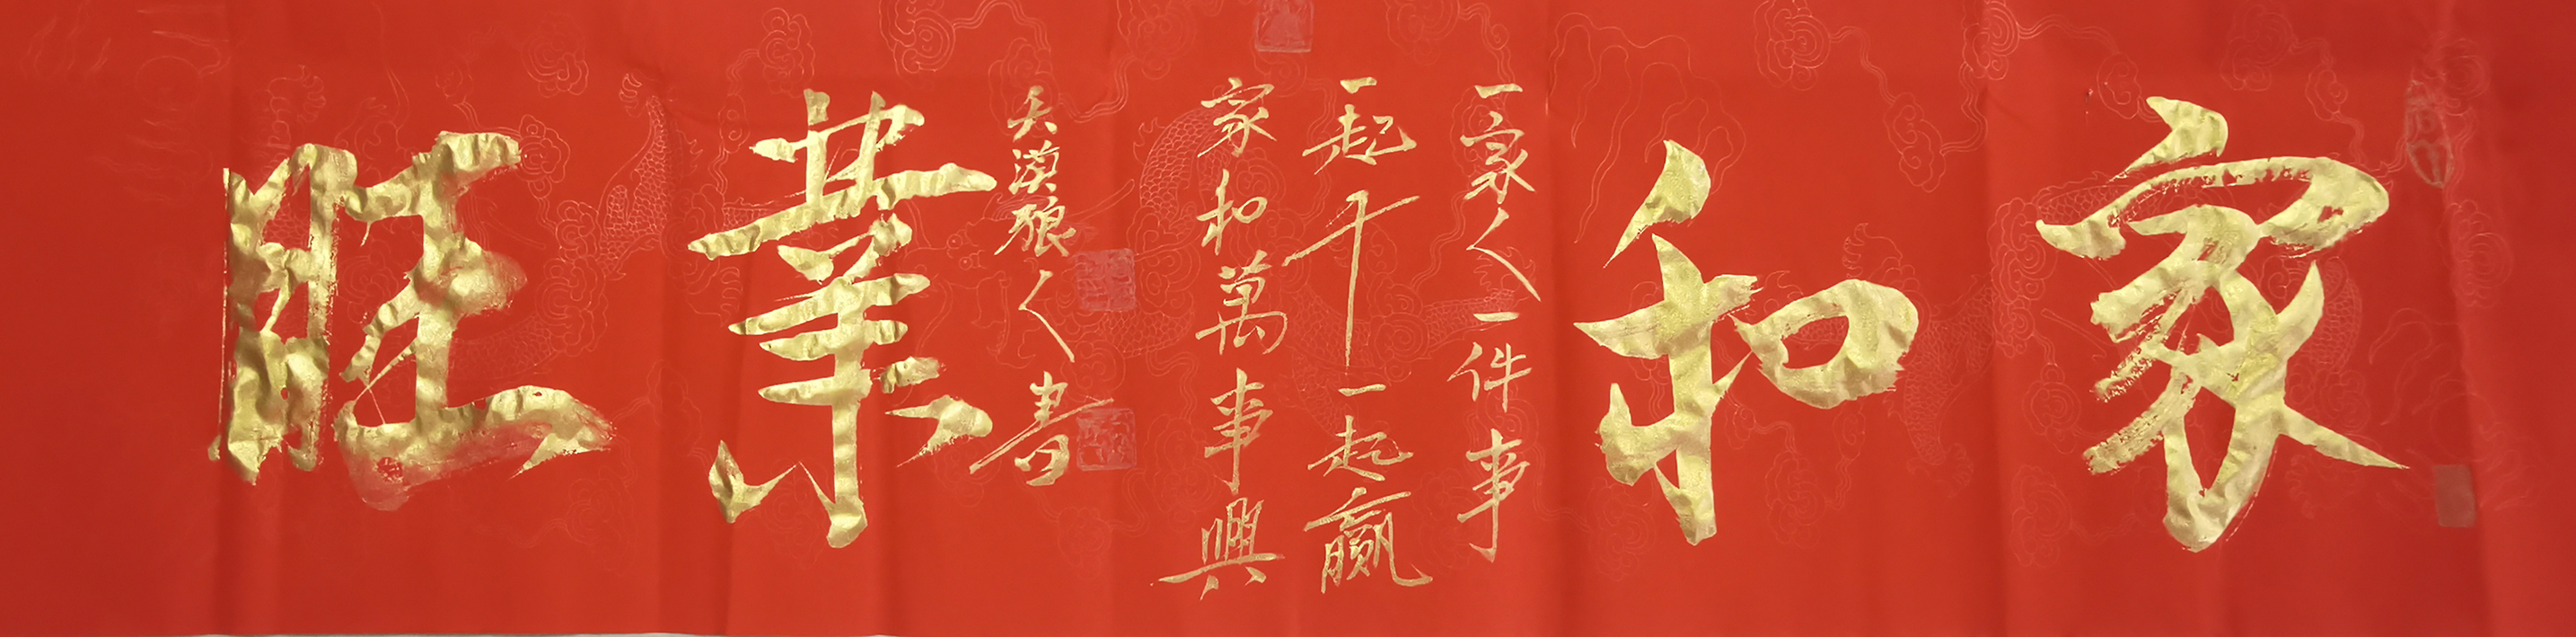 家和
一家人一件事
一起干一起赢
家和萬事興
大漠狼人書
業旺